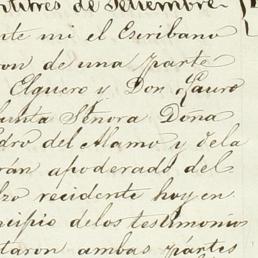 ntitres de Setiembre
nte mi el Escribano
ron de una parte
Elguero y Don Lauro
unta Señora Doña
edro del Alamo y dela
rán apoderado del
lzo recidente hoy en
cipio delos testimonios
taron ambas partes